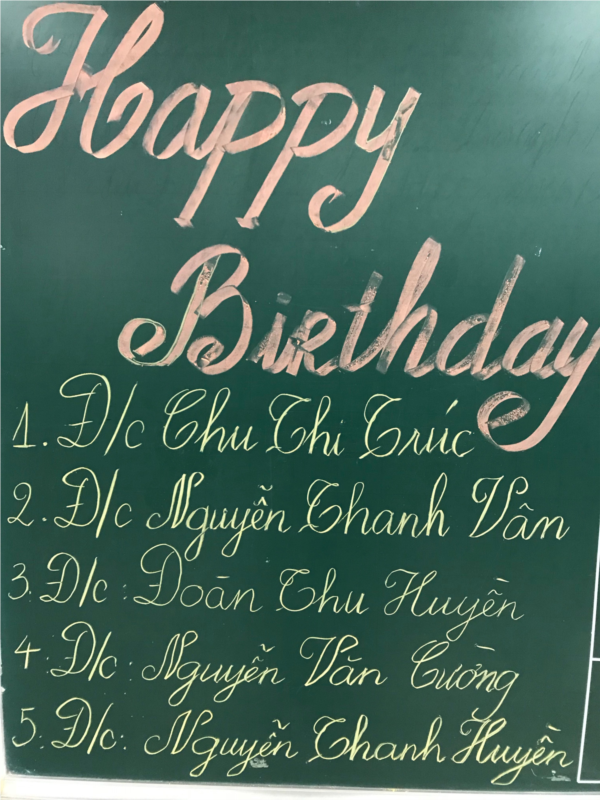 Happy
Birthday
1. Đ/c Chu Thi Trúc
2. Đ/c Nguyễn Thanh Vân
3. Đ/c: Đoàn Thu Huyền
4. Đ/c: Nguyễn Văn Cường
5. Đ/c: Nguyễn Thanh Huyền